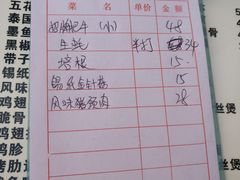 菜 名 单价 金额
肥牛 (小) 48
生蚝 半打 34
培根 15
锡纸金针菇 15
风味猪颈肉 28
五花
泰国
墨鱼
黑椒
带子
锡纸
风味
鸡翅
脆骨
鸡翅
鸡胗
烤肋
丝煲
煲